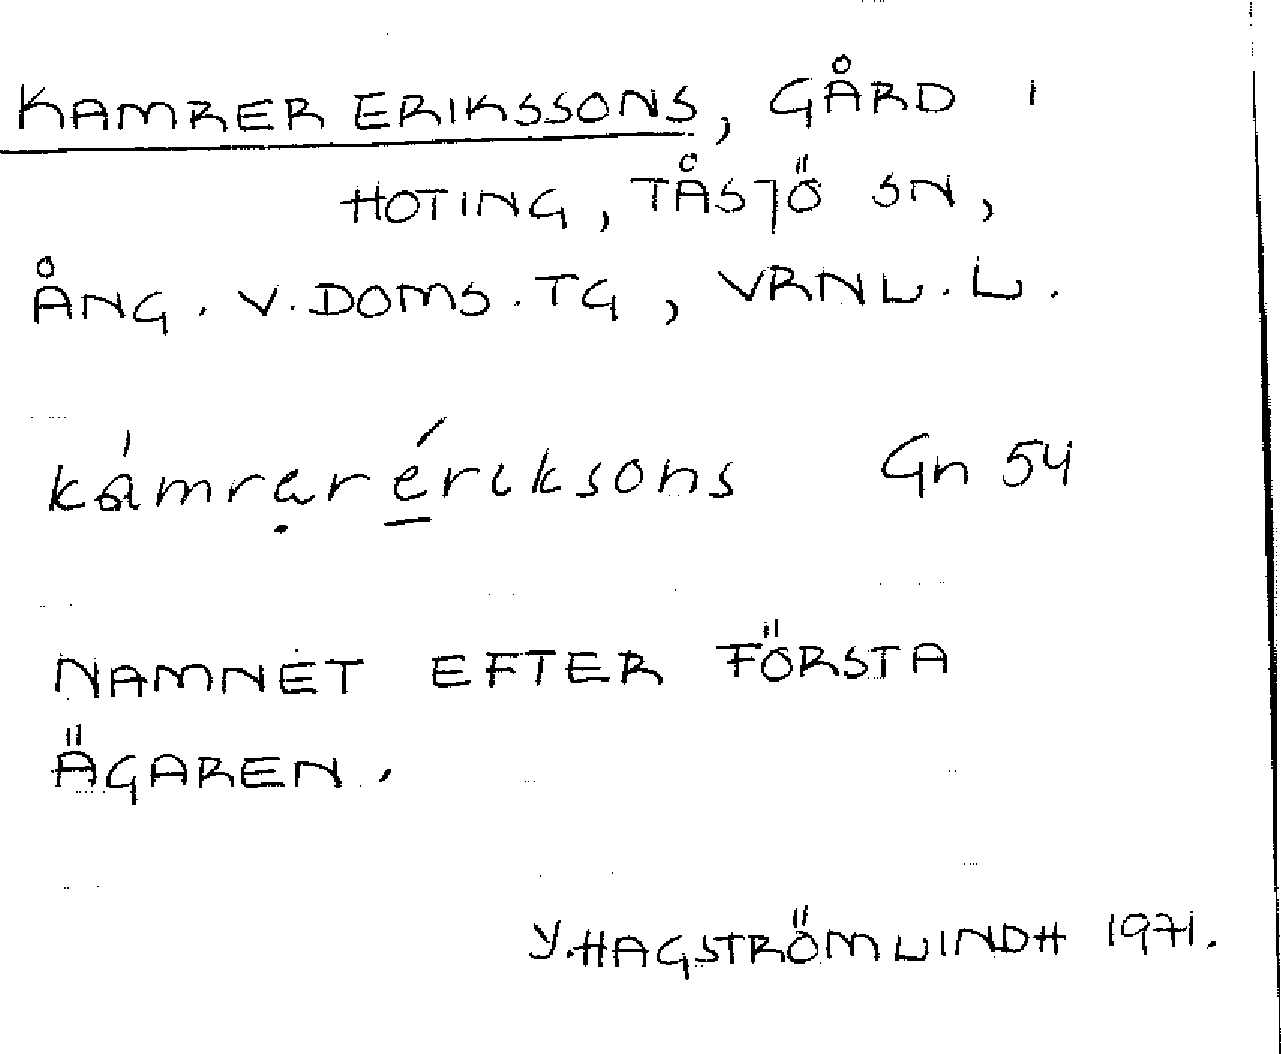 KAMRER ERIKSSONS, GÅRD I
HOTING, TÅSJÖ SN,
ÅNG. V.DOMS.TG, VRNL.L.
kámrạr é̱riksons Gn 54
NAMNET EFTER FÖRSTA
ÄGAREN.
Y.HAGSTRÖM LINDH 1971.